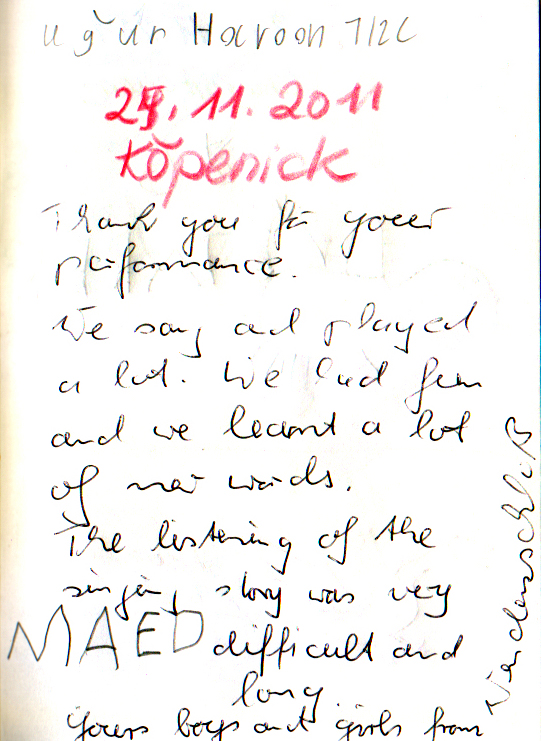 uğur Haroon 7/2C
11. 2011
Köpenick
Thank you for your
performance.
We sang and played
a lot. We had fun
and we learnt a lot
of new words.
The listening of the
singing story was very
MAED difficult and
long
Yours boys and girls from
Wendenschloß